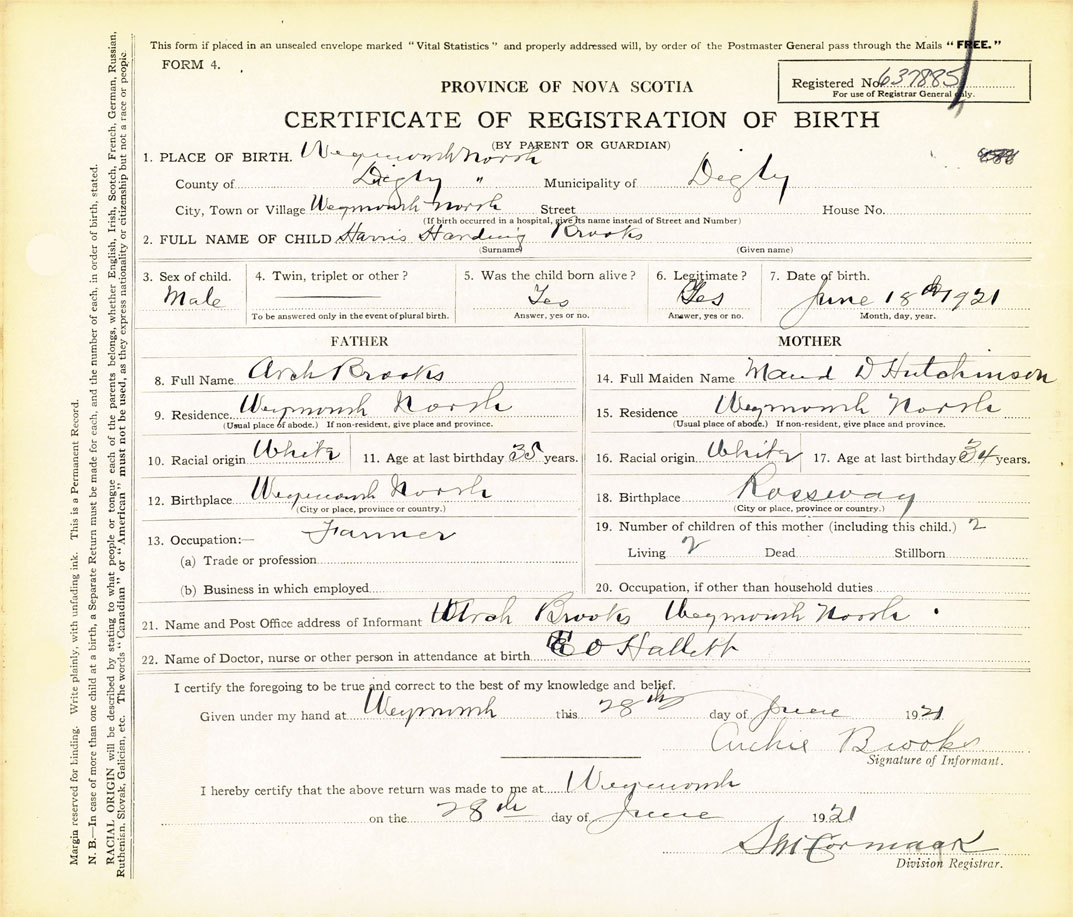 This form if placed in an unsealed envelope marked "Vital Statistics" and properly addressed will, by order of the Postmaster General pass through the Mails "FREE."
FORM 4.
Registered No. 637885
For use of Registrar General only.
PROVINCE OF NOVA SCOTIA
CERTIFICATE OF REGISTRATION OF BIRTH
(BY PARENT OR GUARDIAN)
1. PLACE OF BIRTH. Weymouth North
County of Digby " Municipality of Digby
City, Town or Village Weymouth North Street House No.
(If birth occurred in a hospital, give its name instead of Street and Number)
2. FULL NAME OF CHILD Harris Harding Brooks
(Surname) (Given name)
3. Sex of child. 4. Twin, triplet or other? 5. Was the child born alive? 6. Legitimate? 7. Date of birth.
Male Yes Yes June 18th 1921
To be answered only in the event of plural birth. Answer, yes or no. Answer, yes or no. Month, day, year.
FATHER
8. Full Name Arch Brooks
9. Residence Weymouth North
(Usual place of abode.) If non-resident, give place and province.
10. Racial origin White 11. Age at last birthday 35 years.
12. Birthplace Weymouth North
(City or place, province or country.)
13. Occupation:— Farmer
(a) Trade or profession
(b) Business in which employed
MOTHER
14. Full Maiden Name Maud D Hutchinson
15. Residence Weymouth North
(Usual place of abode.) If non-resident, give place and province.
16. Racial origin White 17. Age at last birthday 34 years.
18. Birthplace Rossway
(City or place, province or country.)
19. Number of children of this mother (including this child.) 2
Living 2 Dead Stillborn
20. Occupation, if other than household duties
21. Name and Post Office address of Informant Arch Brooks Weymouth North
22. Name of Doctor, nurse or other person in attendance at birth E O Hallett
I certify the foregoing to be true and correct to the best of my knowledge and belief.
Given under my hand at Weymouth this 28th day of June 1921
Archie Brooks
Signature of Informant.
I hereby certify that the above return was made to me at Weymouth
on the 28th day of June 1921
S McCormack
Division Registrar.
Margin reserved for binding. Write plainly, with unfading ink. This is a Permanent Record.
N. B.—In case of more than one child at a birth, a Separate Return must be made for each, and the number of each, in order of birth, stated.
RACIAL ORIGIN will be described by stating to what people or tongue each of the parents belongs, whether English, Irish, Scotch, French, German, Russian,
Ruthenian, Slovak, Galician, etc. The words "Canadian" or "American" must not be used, as they express nationality or citizenship but not a race or people.